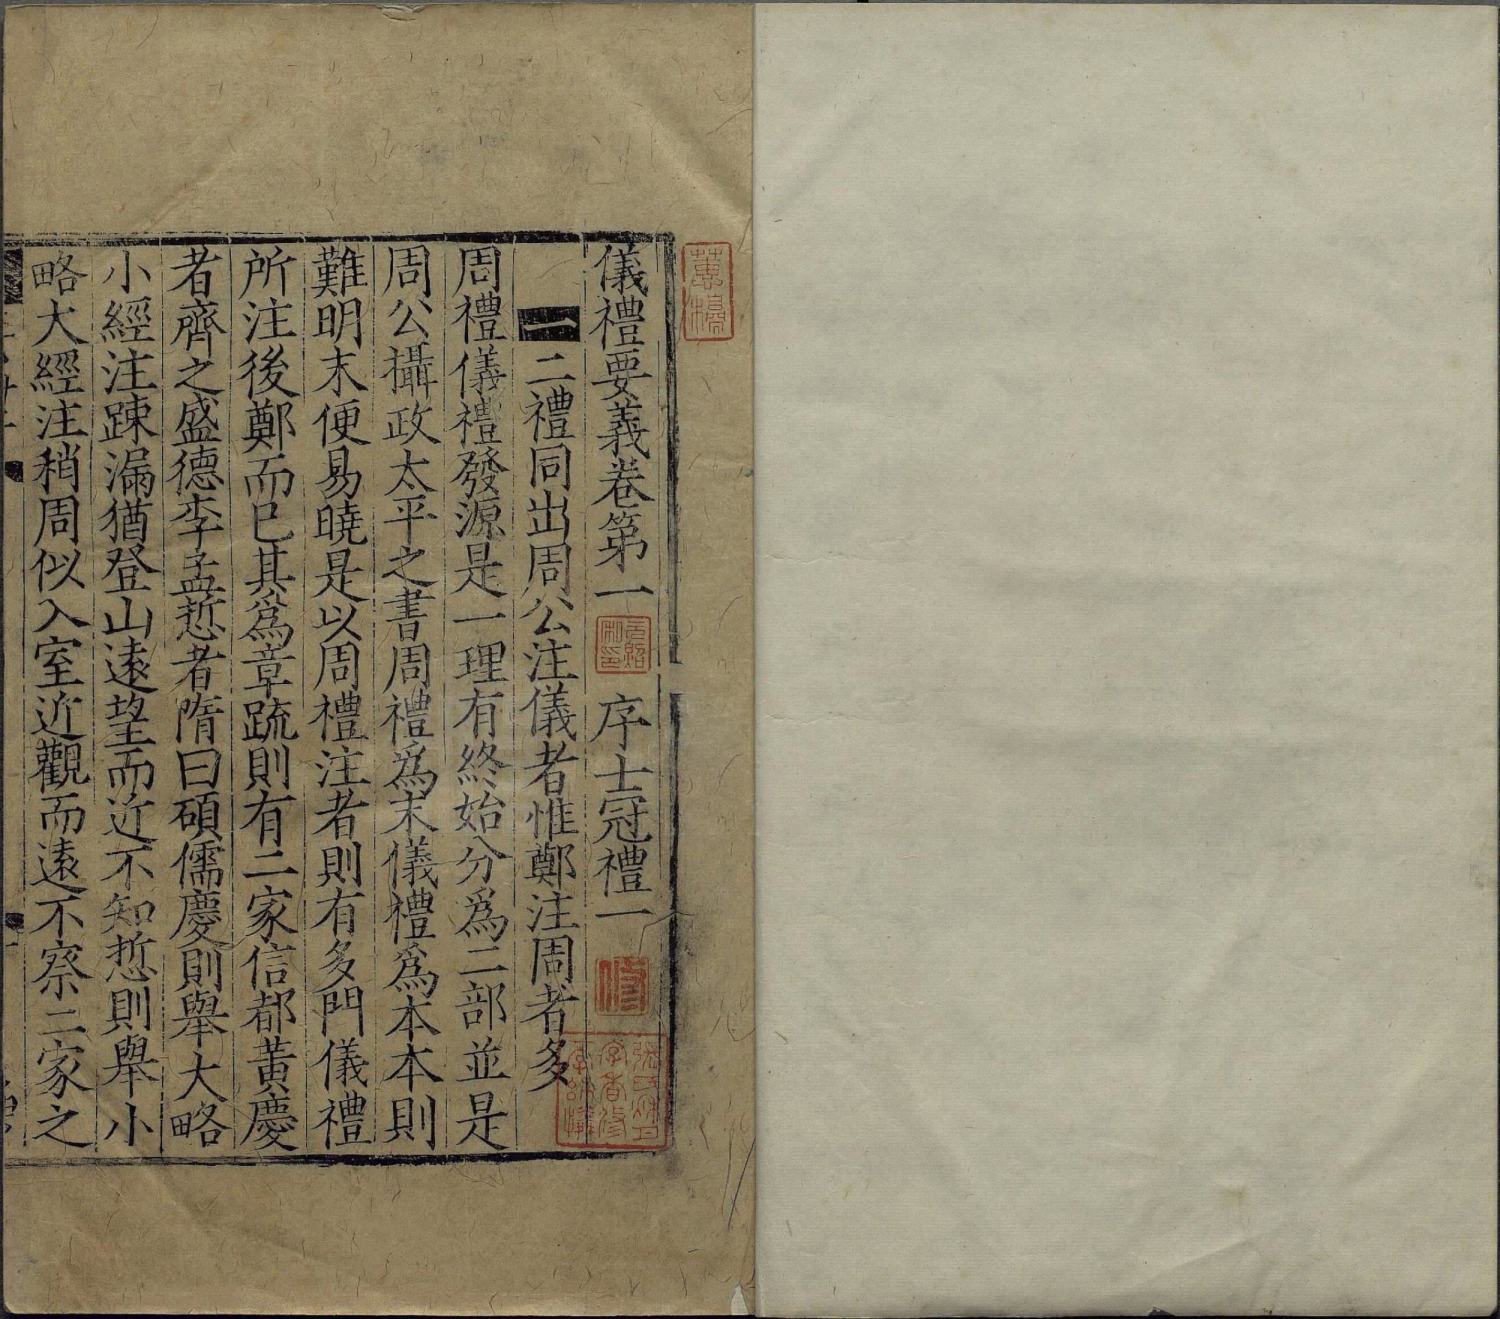 儀禮要義卷第一　序士冠禮一
一　二禮同出周公注儀者惟鄭注周者多
周禮儀禮發源是一理有終始分為二部並是
周公攝政太平之書周禮為末儀禮為本本則
難明末便易曉是以周禮注者則有多門儀禮
所注後鄭而已其為章疏則有二家信都黃慶
者齊之盛德李孟悊者隋曰碩儒慶則舉大略
小經注踈漏猶登山遠望而近不知悊則舉小
略大經注稍周似入室近觀而遠不察二家之
蕙櫋
修